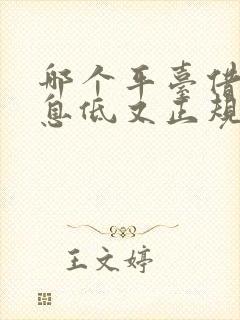 哪个平臺借
息低又正规
王文婷